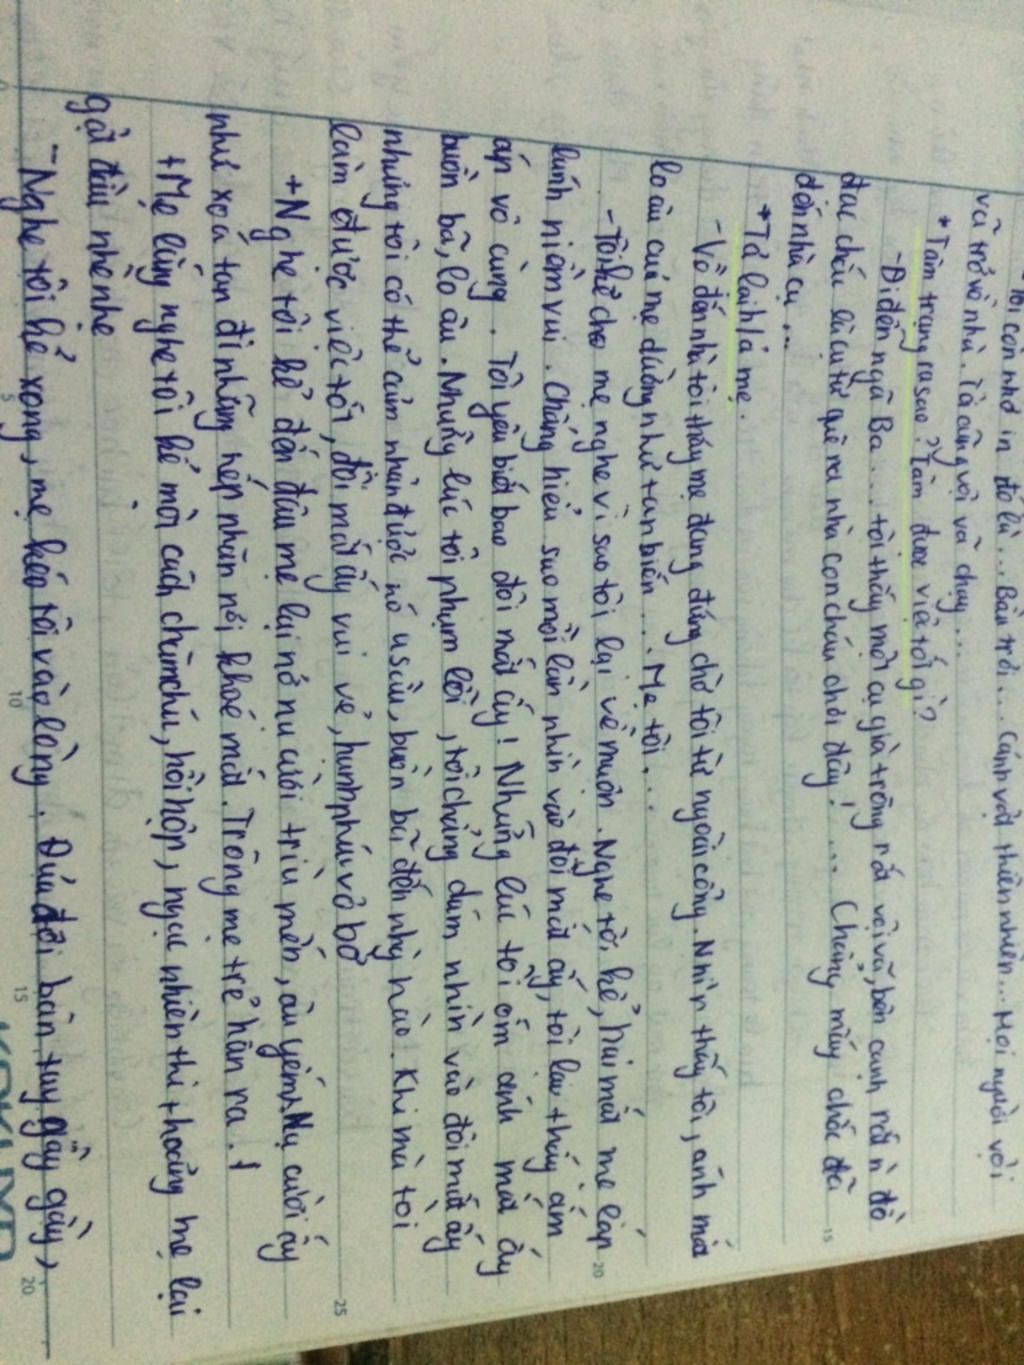 Tôi còn nhớ in đó là... Bầu trời... Cảnh vật thiên nhiên... Mọi người vội
vã trở về nhà. Tôi cũng vội vã chạy...
* Tâm trạng ra sao? Làm được việc tốt gì?
- Đi đến ngã Ba.... tôi thấy một cụ già trông rất vội vã, bên cạnh rất n` đồ
đạc chắc là cụ từ quê ra nhà con cháu chơi đây!.... Chẳng mấy chốc đã
đến nhà cụ...
* Tả lại h/a mẹ.
- Về đến nhà tôi thấy mẹ đang đứng chờ tôi từ ngoài cổng. Nhìn thấy tôi, ánh mắt
lo âu của mẹ dường như tan biến... Mẹ tôi...
- Tôi kể cho mẹ nghe vì sao tôi lại về muộn. Nghe tôi kể, hai mắt mẹ lấp
lánh niềm vui. Chẳng hiểu sao mỗi lần nhìn vào đôi mắt ấy, tôi lại thấy ấm
áp vô cùng. Tôi yêu biết bao đôi mắt ấy! Những lúc tôi ốm ánh mắt ấy
buồn bã, lo âu. Những lúc tôi phạm lỗi, tôi chẳng dám nhìn vào đôi mắt ấy
nhưng tôi có thể cảm nhận được nó u sầu, buồn bã đến nhường nào. Khi mà tôi
làm được việc tốt, đôi mắt ấy vui vẻ, hạnh phúc vô bờ
+ Nghe tôi kể đến đâu mẹ lại nở nụ cười trìu mến, âu yếm. Nụ cười ấy
như xoá tan đi những nếp nhăn nơi khoé mắt. Trông mẹ trẻ hẳn ra.!
+ Mẹ lắng nghe tôi kể một cách chăm chú, hồi hộp, ngạc nhiên thi thoảng mẹ lại
gật đầu nhè nhẹ
- Nghe tôi kể xong, mẹ kéo tôi vào lòng. Đưa đôi bàn tay gầy gầy,